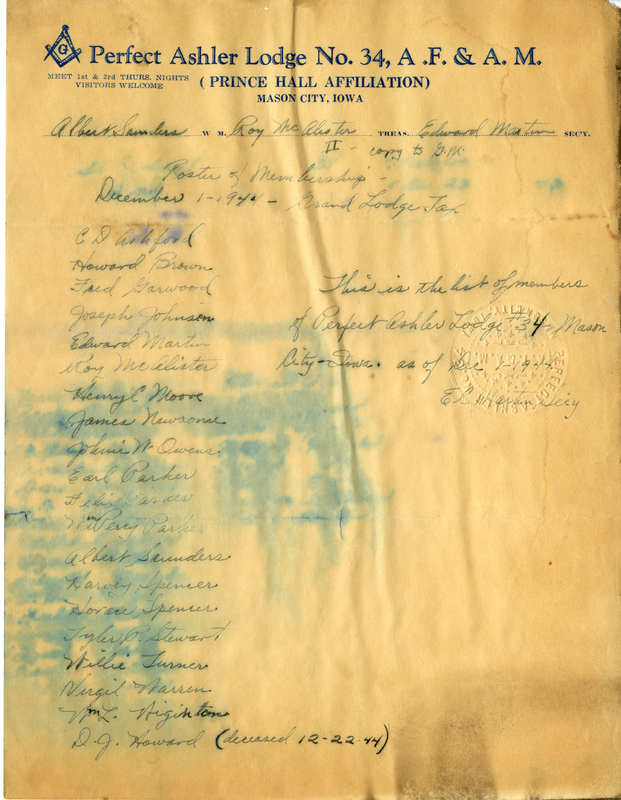 G
Perfect Ashler Lodge No. 34, A .F. & A. M.
MEET 1st & 3rd THURS. NIGHTS
VISITORS WELCOME
( PRINCE HALL AFFILIATION)
MASON CITY, IOWA
Albert Saunders W M. Roy McAlister TREAS. Edward Martin SEC'Y.
II - copy to G.M.
Roster of Membership -
December 1-1944 - Grand Lodge Tax
C D Ashford
Howard Brown
Fred Garwood
Joseph Johnson
Edward Martin
Roy McAlister
Henry C Moore
James Newsome
Johnie W. Owens
Earl Parker
Felix
Wm Percy Parker
Albert Saunders
Harvey Spencer
Horace Spencer
Tyler P. Stewart
Willie Turner
Virgil Warren
Wm L. Higinton
D. J. Howard (deceased 12-22-44)
This is the list of members
of Perfect Ashler Lodge #34, Mason
City - Iowa. as of Dec 1-1944
Ed Martin Secy